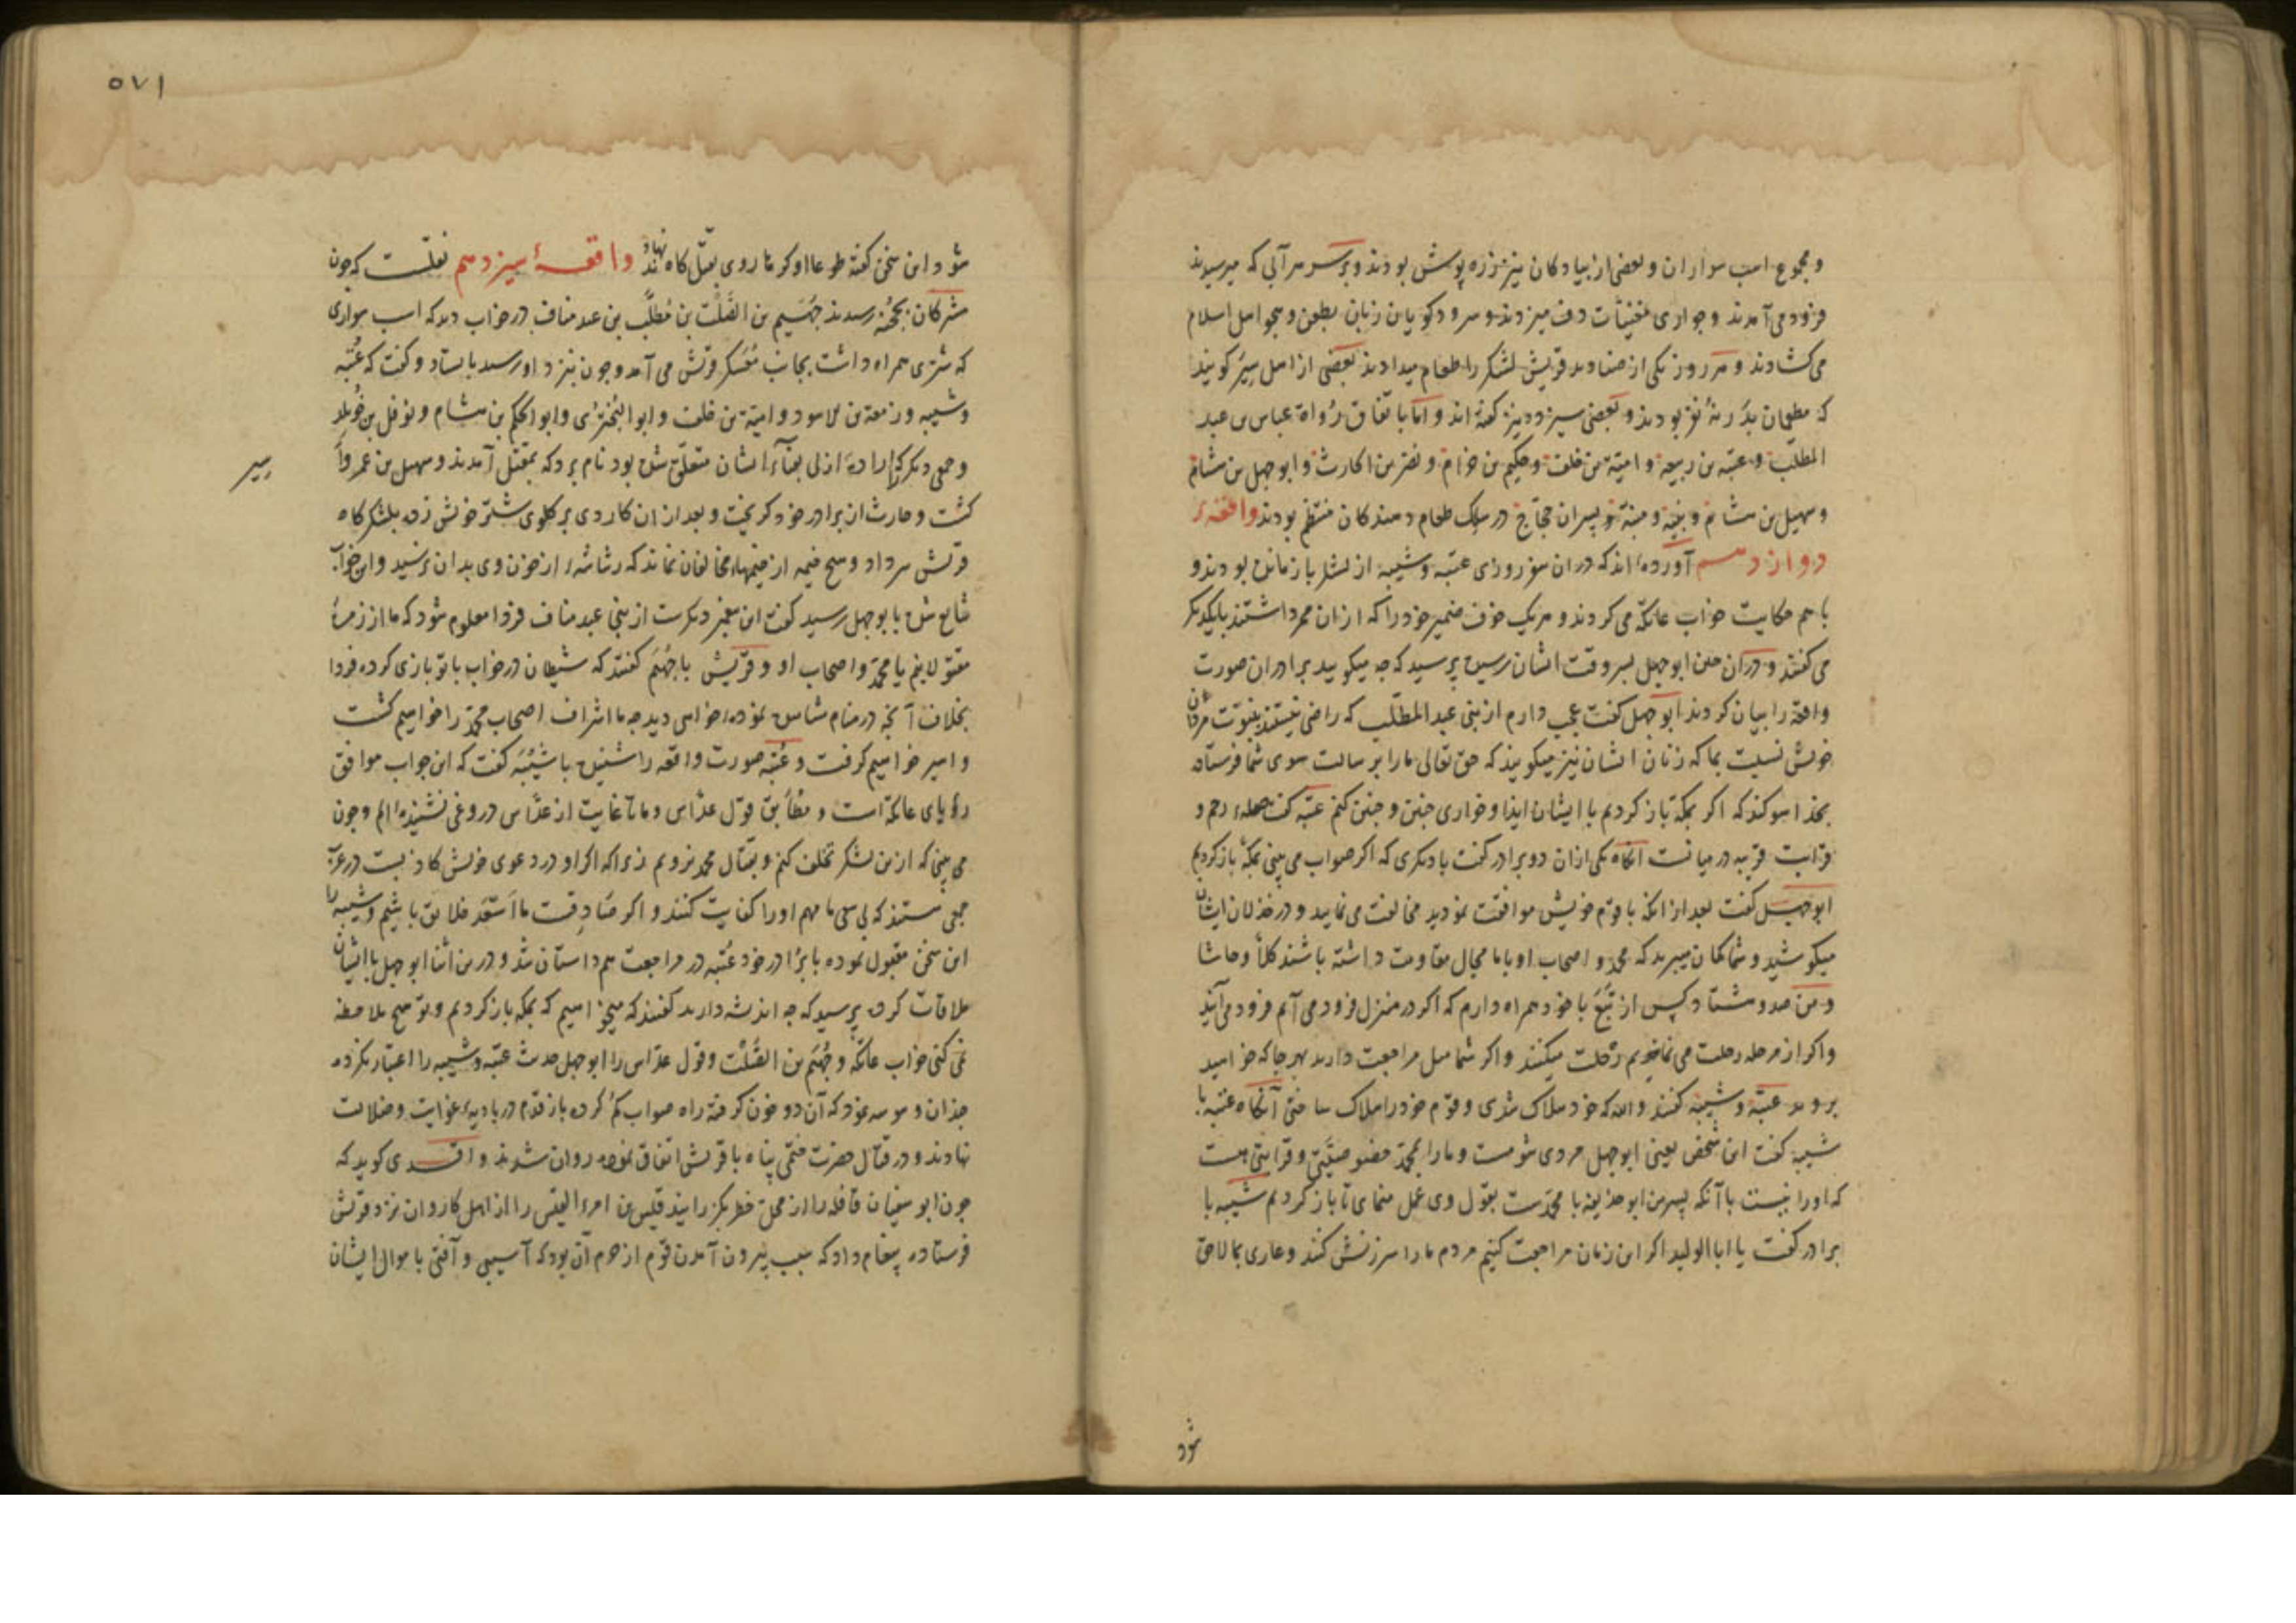 و مجموع اسب سواران و بعضی از پیادکان نیز زره پوش بودند و بر سر هر آبی که میرسیدند
فرود می آمدند و جواری مغنیات دف میزدند و سرود کویان زبان بطعن و هجو اهل اسلام
می کشادند و هر روز یکی از صنادید قریش لشکر را طعام میدادند بعضی از اهل سیر کویند
که مطعمان بدر نه نفر بودند و بعضی سیزده نیز کفته اند و اما باتفاق رواة عباس بن عبد
المطلب و عتبه بن ربیعه و امیة بن خلف و حکیم بن حزام و نضر بن الحارث و ابو جهل بن هشام
و سهیل بن و نبیه و منبه و پسران حجاج در سلک طعام دهندکان منتظم بودند واقعهٔ
دوازدهم آورده اند که در ان سفر روزی عتبه و شیبه از لشکر باز مانده بودند و
با هم حکایت خواب عاتکه می کردند و هر یک خوف ضمیر خود را که از ان ممر داشتند بایکدیکر
می کفتند و در ان حین ابو جهل بسر وقت ایشان رسیده پرسید که چه میکویید برادران صورت
واقعه را بیان کردند ابو جهل کفت عجب دارم از بنی عبد المطلب که راضی نیستند بنبوت مردان
خویش نسبت بما که زنان ایشان نیز میکویند که حق تعالی ما را برسالت سوی شما فرستاده
بخدا سوکند که اکر بمکه باز کردیم با ایشان ایذا و خواری چنین و چنین کنم عتبه کفت صلهٔ رحم و
قرابت قریبه در میانست آنکاه یکی از ان دو برادر کفت با دیکری که اکر صواب می بینی بمکه باز کردیم
ابو جهل کفت بعد از انکه با قوم خویش موافقت نمودید مخالفت می نمایید و در خذلان ایشان
میکوشید و شما کمان میبرید که محمد و اصحاب او با ما مجال مقاومت داشته باشند کلا و حاشا
و من صد و هشتاد کس از تبع با خود همراه دارم که اکر در منزل فرود می آیم فرود می آیند
و اکر از مرحله رحلت می نماییم رحلت میکنند و اکر شما میل مراجعت دارید بهر جا که خواهید
بروید عتبه و شیبه کفتند والله که خود هلاک شدی و قوم خود را هلاک ساختی آنکاه عتبه با
شیبه کفت این شخص یعنی ابو جهل مردی شومست و ما را بمحمد قرابتی هست
که او را نیست با آنکه پسر من ابو حذیفه با محمدست بقول وی عمل منمای تا باز کردیم شیبه با
برادر کفت یا ابا الولید اکر این زمان مراجعت کنیم مردم ما را سرزنش کنند و عاری بما لاحق
شود
۵۷۱
شود این سخن کفته طوعا او کرها روی بقتل کاه نهادند واقعهٔ سیزدهم نقلست که چون
مشرکان بجحفه رسیدند جهیم بن الصلت بن مطلب بن عبد مناف در خواب دید که اسب سواری
که شتری همراه داشت بجانب معسکر قریش می آمد و چون نزد او رسید بایستاد و کفت که عتبه
و شیبه و زمعة بن الاسود و امیة بن خلف و ابو البختری و ابو الحکم بن هشام و نوفل بن خویلد
و جمعی دیکر که ارادهٔ ازلی بفناء ایشان متعلق شده بود نام برد که بمقتل آمدند و سهیل بن عمرو
اسیر
کشت و حارث از برادر خود کریخت و بعد از ان کاردی بر کلوی شتر خویش زده بلشکر کاه
قریش سر داد و هیچ خیمه از خیمهاء مخالفان نماند که رشاشهٔ از خون وی بدان نرسید و این خواب
شایع شده بابو جهل رسید کفت این پیغمبر دیکرست از بنی عبد مناف فردا معلوم شود که ما از زمرهٔ
مقتولانیم یا محمد و اصحاب او و قریش با جهیم کفتند که شیطان در خواب با تو بازی کرده فردا
بخلاف آنچه در منام مشاهده نموده خواهی دید چه ما اشراف اصحاب محمد را خواهیم کشت
و اسیر خواهیم کرفت و عتبه صورت واقعه را شنیده با شیبه کفت که این خواب موافق
رؤیای عاتکه است و مطابق قول عداس و ما تا غایت از عداس دروغی نشنیده ایم و چون
می بینی که ازین لشکر تخلف کنیم و بقتال محمد نرویم زیرا که اکر او در دعوی خویش کاذبست در عرب
جمعی هستند که بی سعی ما مهم او را کفایت کنند و اکر صادقست ما اسعد خلایق باشیم و شیبه را
این سخن مقبول نموده با برادر خود عتبه در مراجعت هم داستان شد و در ین اثنا ابو جهل با ایشان
ملاقات کرده پرسید که چه اندیشه دارید کفتند که میخواهیم که بمکه باز کردیم و تو هیچ ملاحظه
نمی کنی خواب عاتکه و جهیم بن الصلت و قول عداس را ابو جهل حدیث عتبه و شیبه را اعتبار نکرده
چندان وسوسه نمود که آن دو خون کرفته راه صواب کم کرده باز قدم در بادیهٔ غوایت و ضلالت
نهادند و در قتال حضرت ختمی پناه با قریش اتفاق نموده روان شدند واقدی کوید که
چون ابو سفیان قافله را از محل خطر بکذرانید قیس بن امرء القیس را از اهل کاروان نزد قریش
فرستاده پیغام داد که سبب بیرون آمدن قوم از حرم آن بود که آسیبی و آفتی باموال ایشان